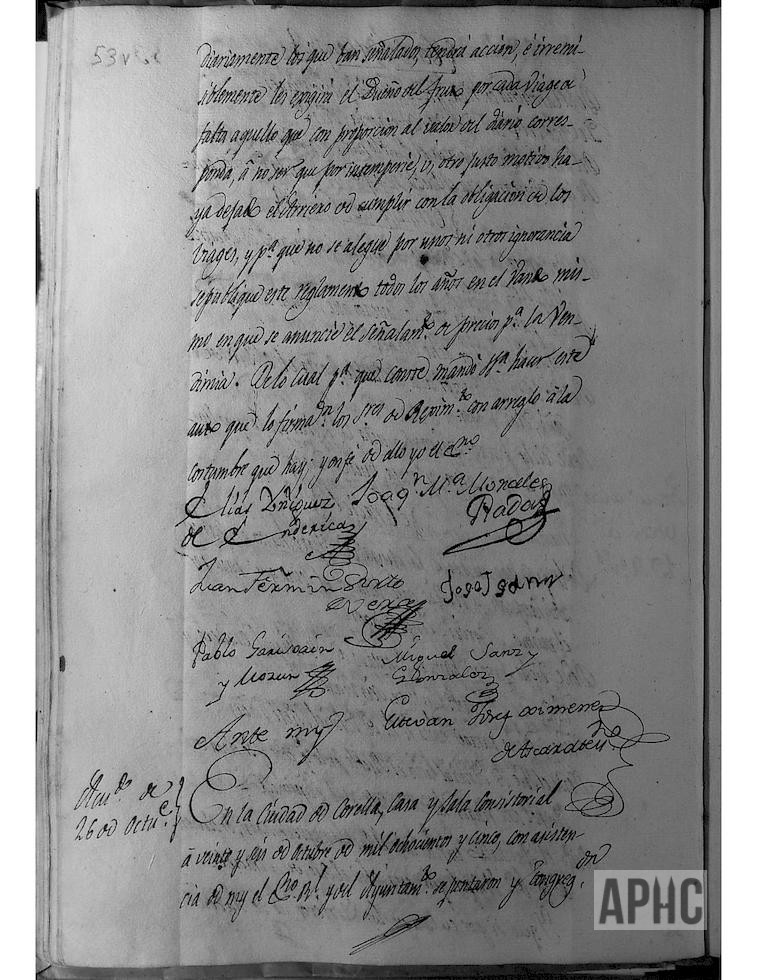 53 v
diariamente los que ban señalado, tendrá accion, é irremi-
siblemente les exigirá el Dueño del fruto por cada Viage
falta aquello que con proporcion al valor del diario corres-
ponda, â no ser que por intemperie, ú, otro justo motivo ha-
ya dejado el Arriero de cumplir con la obligacion de los
Viages, y pª que no se alegue por unos ni otros ignorancia
se publique este reglamento todos los años en el vando mis-
mo en que se anuncie el señalamto de precios pª la Ven-
dimia. De lo cual pª que conste mandó hacer este
auto que lo firman los Sres de Regimto con arreglo â la
costumbre que hay; y en fé de ello yo el Sno
Elias Yñiguez Joaqn Mª Morales
de Enderica Rada
Juan Fermin
Josef
Pablo Garivain Miguel Sanz y
y Mozun Gonzalez
Ante my Estevan Josef Ximenez
de Ascarate
Acudo de
26 de Octue
En la Ciudad de Corella, Casa y Sala Consistorial
â veinte y seis de Octubre de mil ochocientos y cinco, con asisten-
cia de my el Sno Rl y del Ayuntamto se juntaron y Congregon
APHC